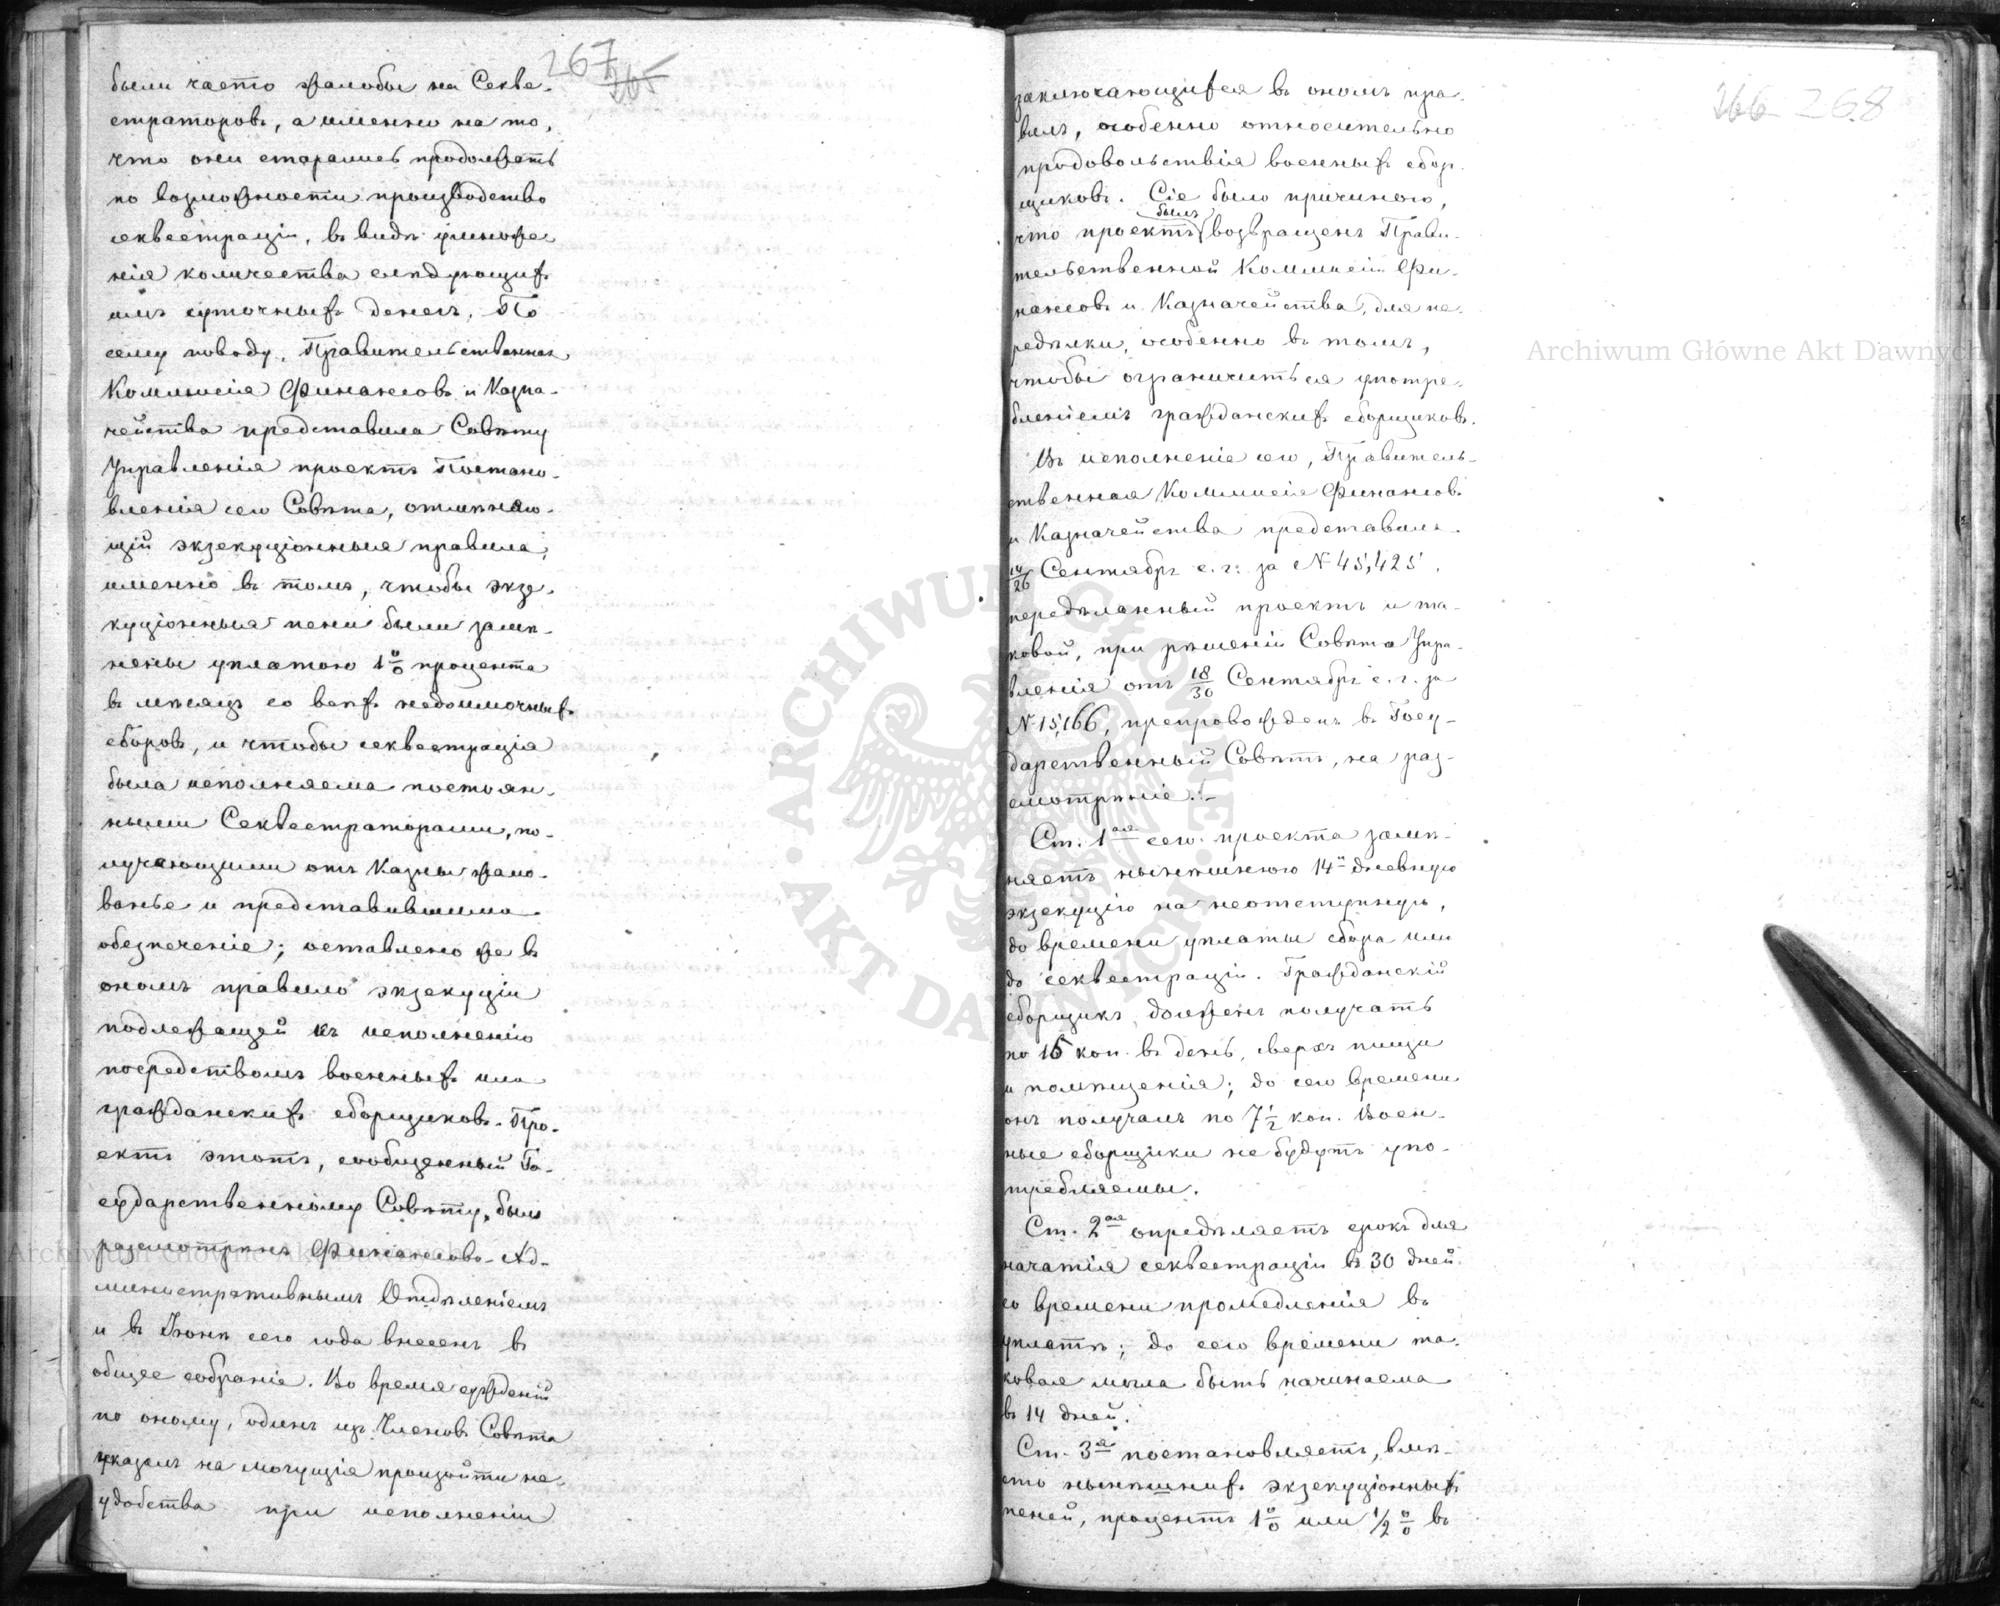 267
265
были часто жалобы на Секве-
страторовъ, а именно на то,
что они старались продолжать
по возможности производство
секвестраціи, въ видѣ умноже-
нія количества слѣдующихъ
имъ суточныхъ денегъ. По
сему поводу, Правительственная
Коммисія Финансовъ и Казна-
чейства представила Совѣту
Управленія проектъ Постано-
вленія сего Совѣта, отмѣняю-
щій экзекуціонныя правила,
именно въ томъ, чтобы экзе-
куціонныя пени были замѣ-
нены уплатою 1% процента
въ мѣсяцъ со всѣхъ недоимочныхъ
сборовъ, и чтобы секвестрація
была исполняема постоян-
ными Секвестраторами, по-
лучающими отъ Казны жало-
ванье и представившими
обезпеченіе; оставлено же въ
ономъ правило экзекуціи
подлежащей къ исполненію
посредствомъ военныхъ или
гражданскихъ сборщиковъ. Про-
ектъ этотъ, сообщенный Го-
сударственному Совѣту, былъ
разсмотрѣнъ Финансово-Ад-
министративнымъ Отдѣленіемъ
и въ Іюнѣ сего года внесенъ въ
общее собраніе. Во время сужденій
по оному, одинъ изъ Членовъ Совѣта
указалъ на могущія произойти не-
удобства при исполненіи
266 268
заключающихся въ ономъ пра-
вилъ, особенно относительно
продовольствія военныхъ сбор-
щиковъ. Сіе было причиною,
былъ
что проектъ возвращенъ Прави-
тельственной Коммисіи Фи-
нансовъ и Казначейства, для пе-
редѣлки, особенно въ томъ,
чтобы ограничиться употре-
бленіемъ гражданскихъ сборщиковъ.
Въ исполненіе сего, Правитель-
ственная Коммисія Финансовъ
и Казначейства представила
14/26 Сентября с. г. за № 45,425
передѣланный проектъ и та-
ковой, при рѣшеніи Совѣта Упра-
вленія отъ 18/30 Сентября с. г. за
№ 15,166, препровожденъ въ Госу-
дарственный Совѣтъ, на раз-
смотрѣніе.
Ст. 1ая сего проекта замѣ-
няетъ нынѣшнюю 14и дневную
экзекуцію на неотступную,
до времени уплаты сбора или
до секвестраціи. Гражданскій
сборщикъ долженъ получать
по 15 коп. въ день, сверхъ пищи
и помѣщенія; до сего времени
онъ получалъ по 7½ коп. Воен-
ные сборщики не будутъ упо-
требляемы.
Ст. 2ая опредѣляетъ срокъ для
начатія секвестраціи въ 30 дней
со времени промедленія въ
уплатѣ; до сего времени та-
ковая могла быть начинаема
въ 14 дней.
Ст. 3я постановляетъ, вмѣ-
сто нынѣшнихъ экзекуціонныхъ
пеней, процентъ 1% или ½% въ
Archiwum Główne Akt Dawnych
Archiwum Główne Akt Dawnych
ARCHIWUM GŁÓWNE AKT DAWNYCH